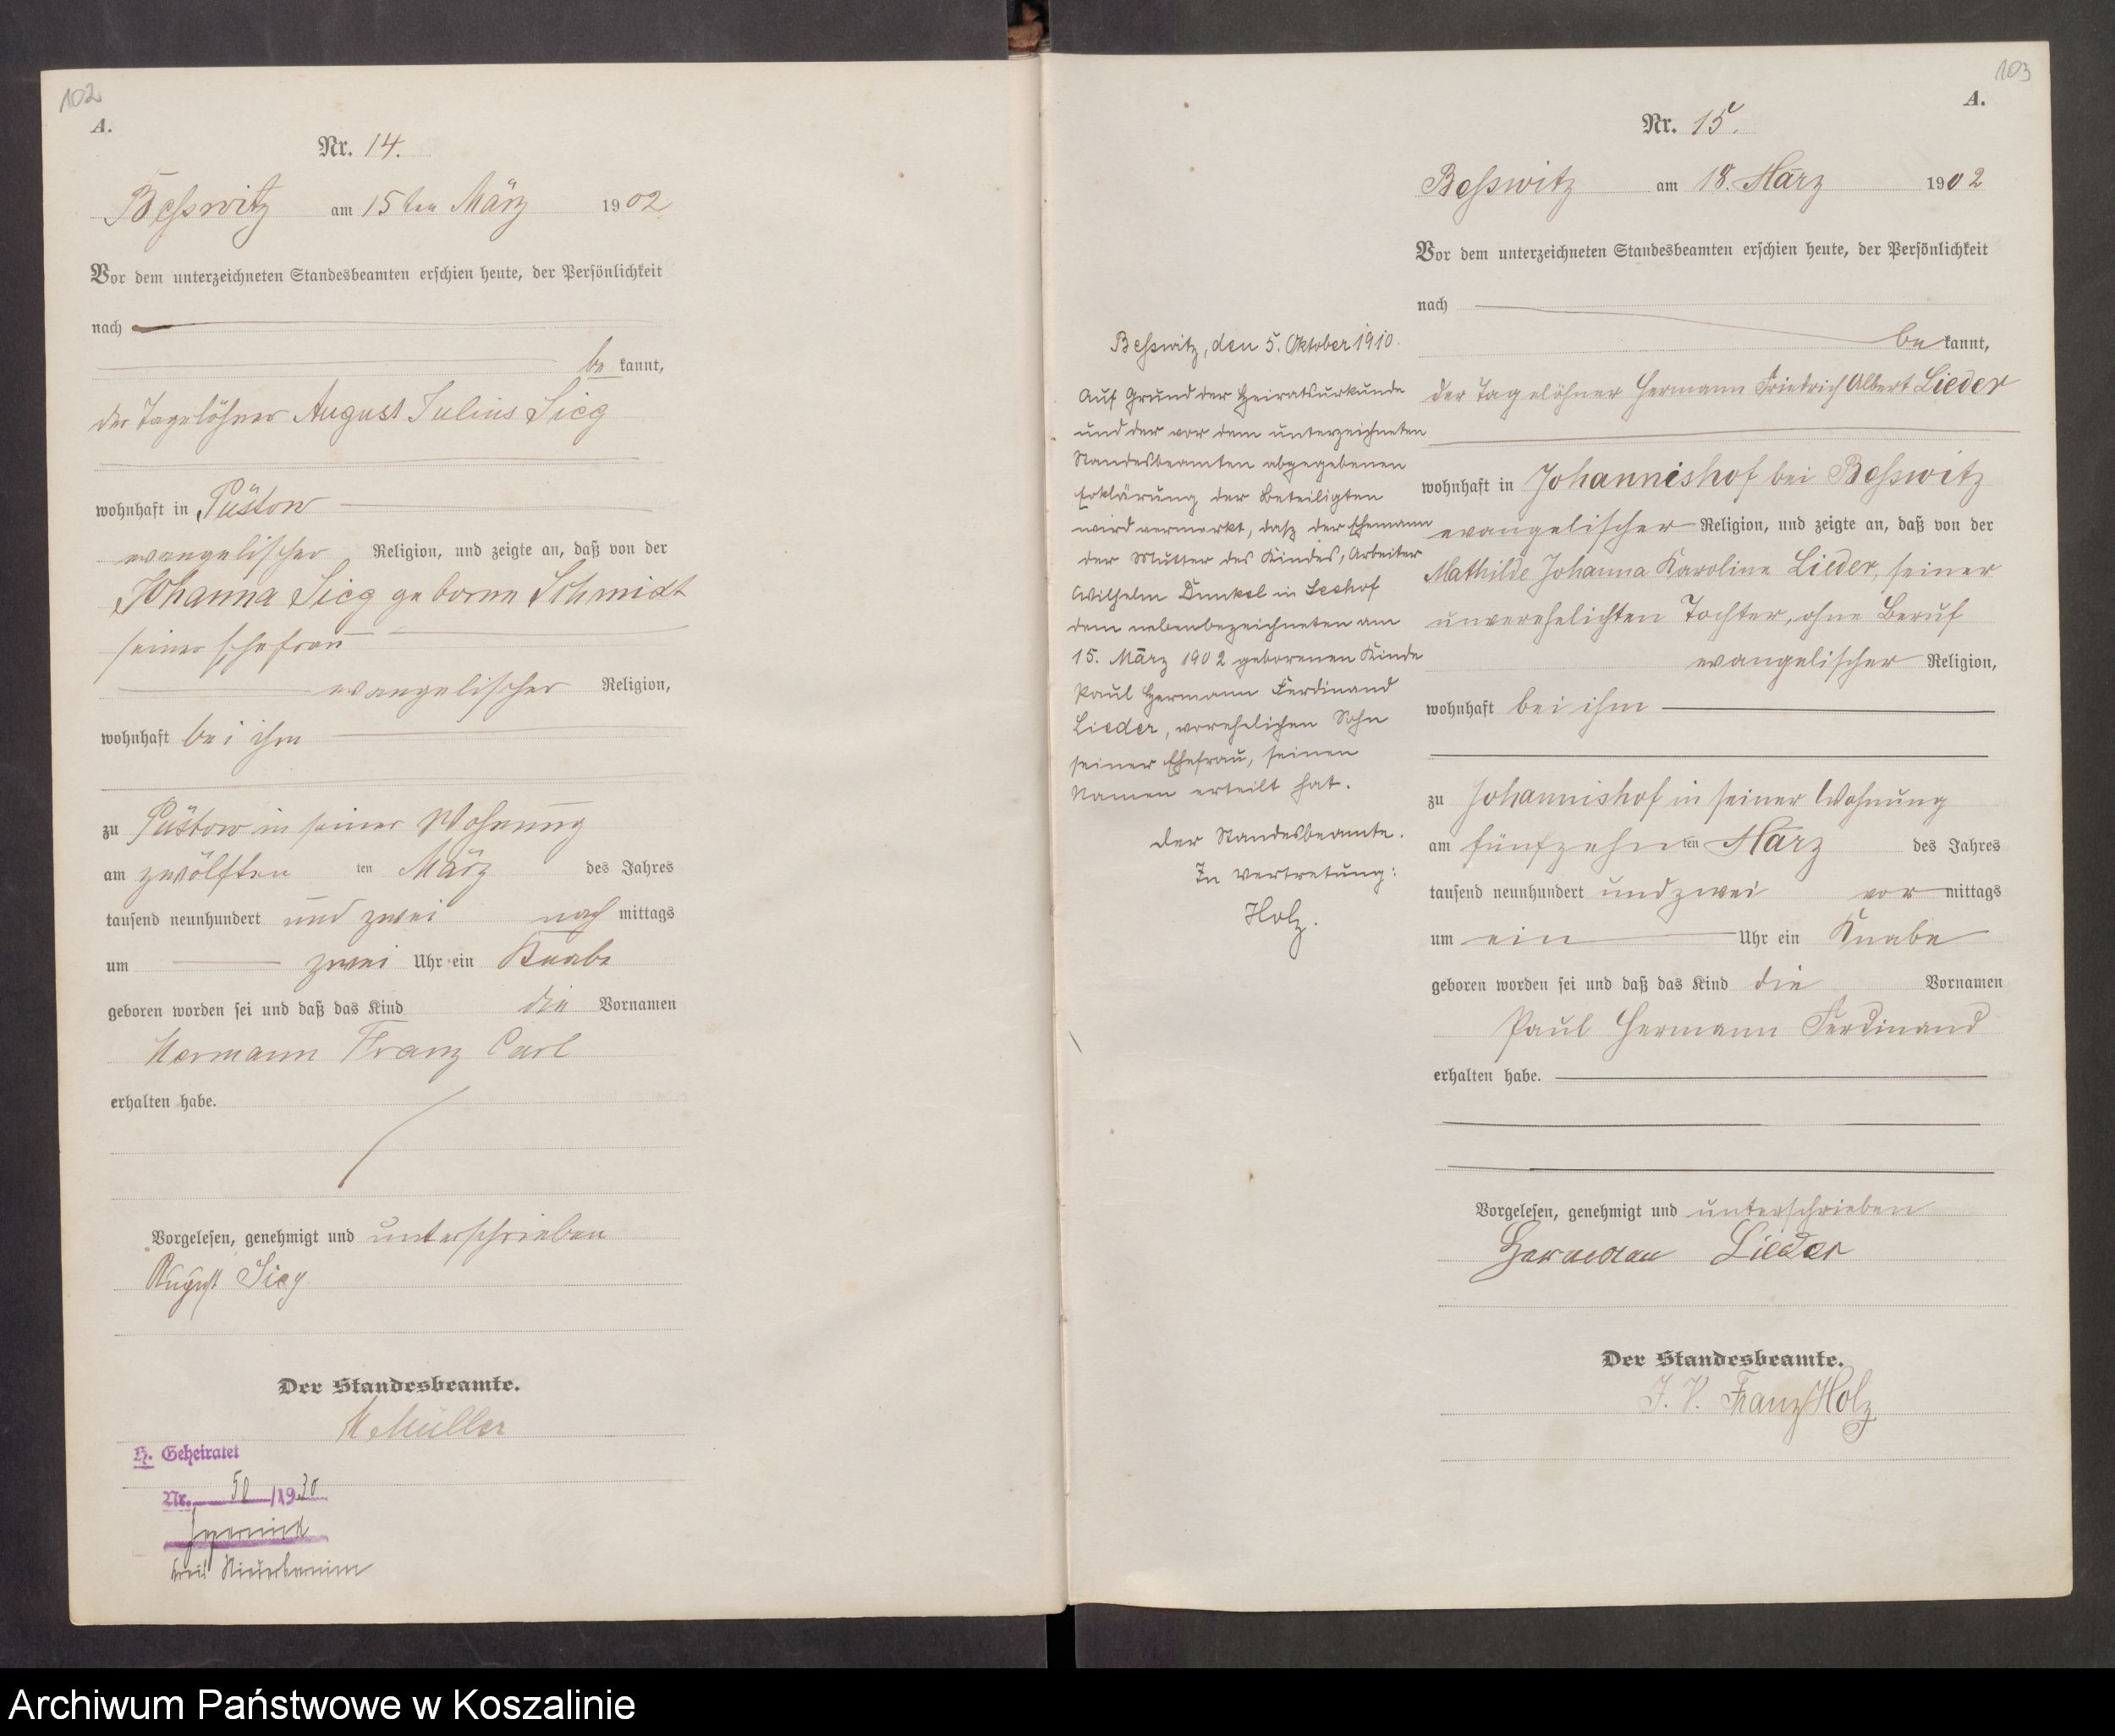 102
A.
Nr. 14.
Beßwitz am 15ten März 1902
Vor dem unterzeichneten Standesbeamten erschien heute, der Persönlichkeit
nach
be kannt,
der Tagelöhner August Julius Sieg
wohnhaft in Püstow
evangelischer Religion, und zeigte an, daß von der
Johanna Sieg geborne Schmidt
seiner Ehefrau
evangelischer Religion,
wohnhaft bei ihm
zu Püstow in seiner Wohnung
am zwölften ten März des Jahres
tausend neunhundert und zwei nach mittags
um zwei Uhr ein Knabe
geboren worden sei und daß das Kind die Vornamen
Hermann Franz Carl
erhalten habe.
Vorgelesen, genehmigt und unterschrieben
August Sieg
Der Standesbeamte.
Müller
H. Geheiratet
Nr. 50/1930
Kreis Niederbarnim
103
A.
Nr. 15.
Beßwitz am 18. März 1902
Vor dem unterzeichneten Standesbeamten erschien heute, der Persönlichkeit
nach
be kannt,
der Tagelöhner Hermann Friedrich Albert Lieder
wohnhaft in Johannishof bei Beßwitz
evangelischer Religion, und zeigte an, daß von der
Mathilde Johanna Karoline Lieder, seiner
unverehelichten Tochter, ohne Beruf
evangelischer Religion,
wohnhaft bei ihm
zu Johannishof in seiner Wohnung
am fünfzehn ten März des Jahres
tausend neunhundert und zwei vor mittags
um ein Uhr ein Knabe
geboren worden sei und daß das Kind die Vornamen
Paul Hermann Ferdinand
erhalten habe.
Vorgelesen, genehmigt und unterschrieben
Herman Lieder
Der Standesbeamte.
J. V. Franz Holz
Beßwitz, den 5. Oktober 1910.
Auf Grund der Heiratsurkunde
und der vor dem unterzeichneten
Standesbeamten abgegebenen
Erklärung der Beteiligten
wird vermerkt, daß der Ehemann
der Mutter des Kindes, Arbeiter
Wilhelm Dunkel in Seehof
dem nebenbezeichneten am
15. März 1902 geborenen Kinde
Paul Hermann Ferdinand
Lieder, vorehelichen Sohn
seiner Ehefrau, seinen
Namen erteilt hat.
Der Standesbeamte.
In Vertretung:
Holz.
Archiwum Państwowe w Koszalinie